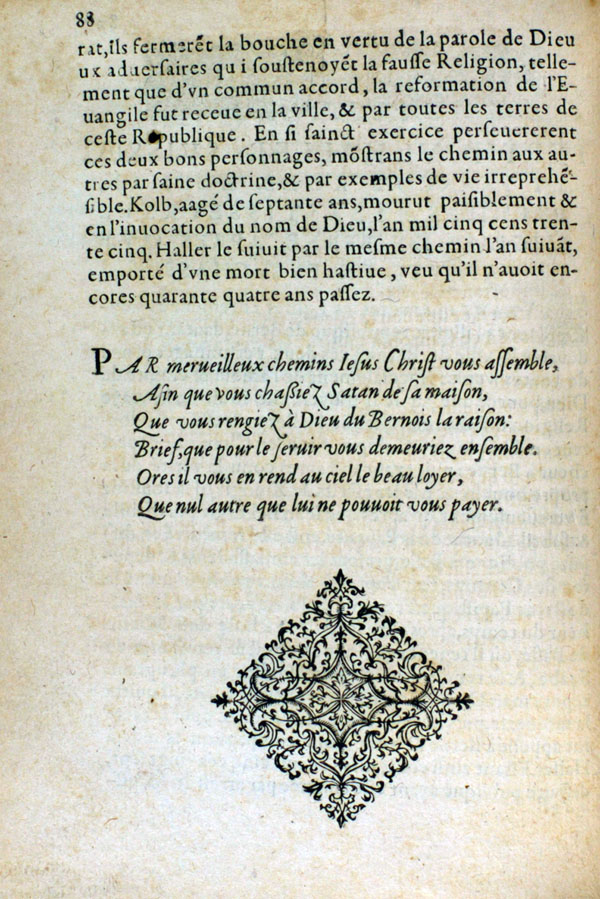 88
rat,ils fermerẽt la bouche en vertu de la parole de Dieu
ux aduersaires qu i soustenoyẽt la fausse Religion, telle-
ment que d'vn commun accord, la reformation de l'E-
uangile fut receue en la ville, & par toutes les terres de
ceste Republique. En si sainct exercice perseuererent
ces deux bons personnages, mõstrans le chemin aux au-
tres par saine doctrine,& par exemples de vie irreprehẽ-
sible.Kolb,aagé de septante ans,mourut paisiblement &
en l'inuocation du nom de Dieu,l'an mil cinq cens tren-
te cinq. Haller le suiuit par le mesme chemin l'an suiuãt,
emporté d'vne mort bien hastiue, veu qu'il n'auoit en-
cores quarante quatre ans passez.
PAR merueilleux chemins Iesus Christ vous assemble,
Afin que vous chassiez Satan de sa maison,
Que vous rengiez à Dieu du Bernois la raison:
Brief,que pour le seruir vous demeuriez ensemble.
Ores il vous en rend au ciel le beau loyer,
Que nul autre que lui ne pouuoit vous payer.